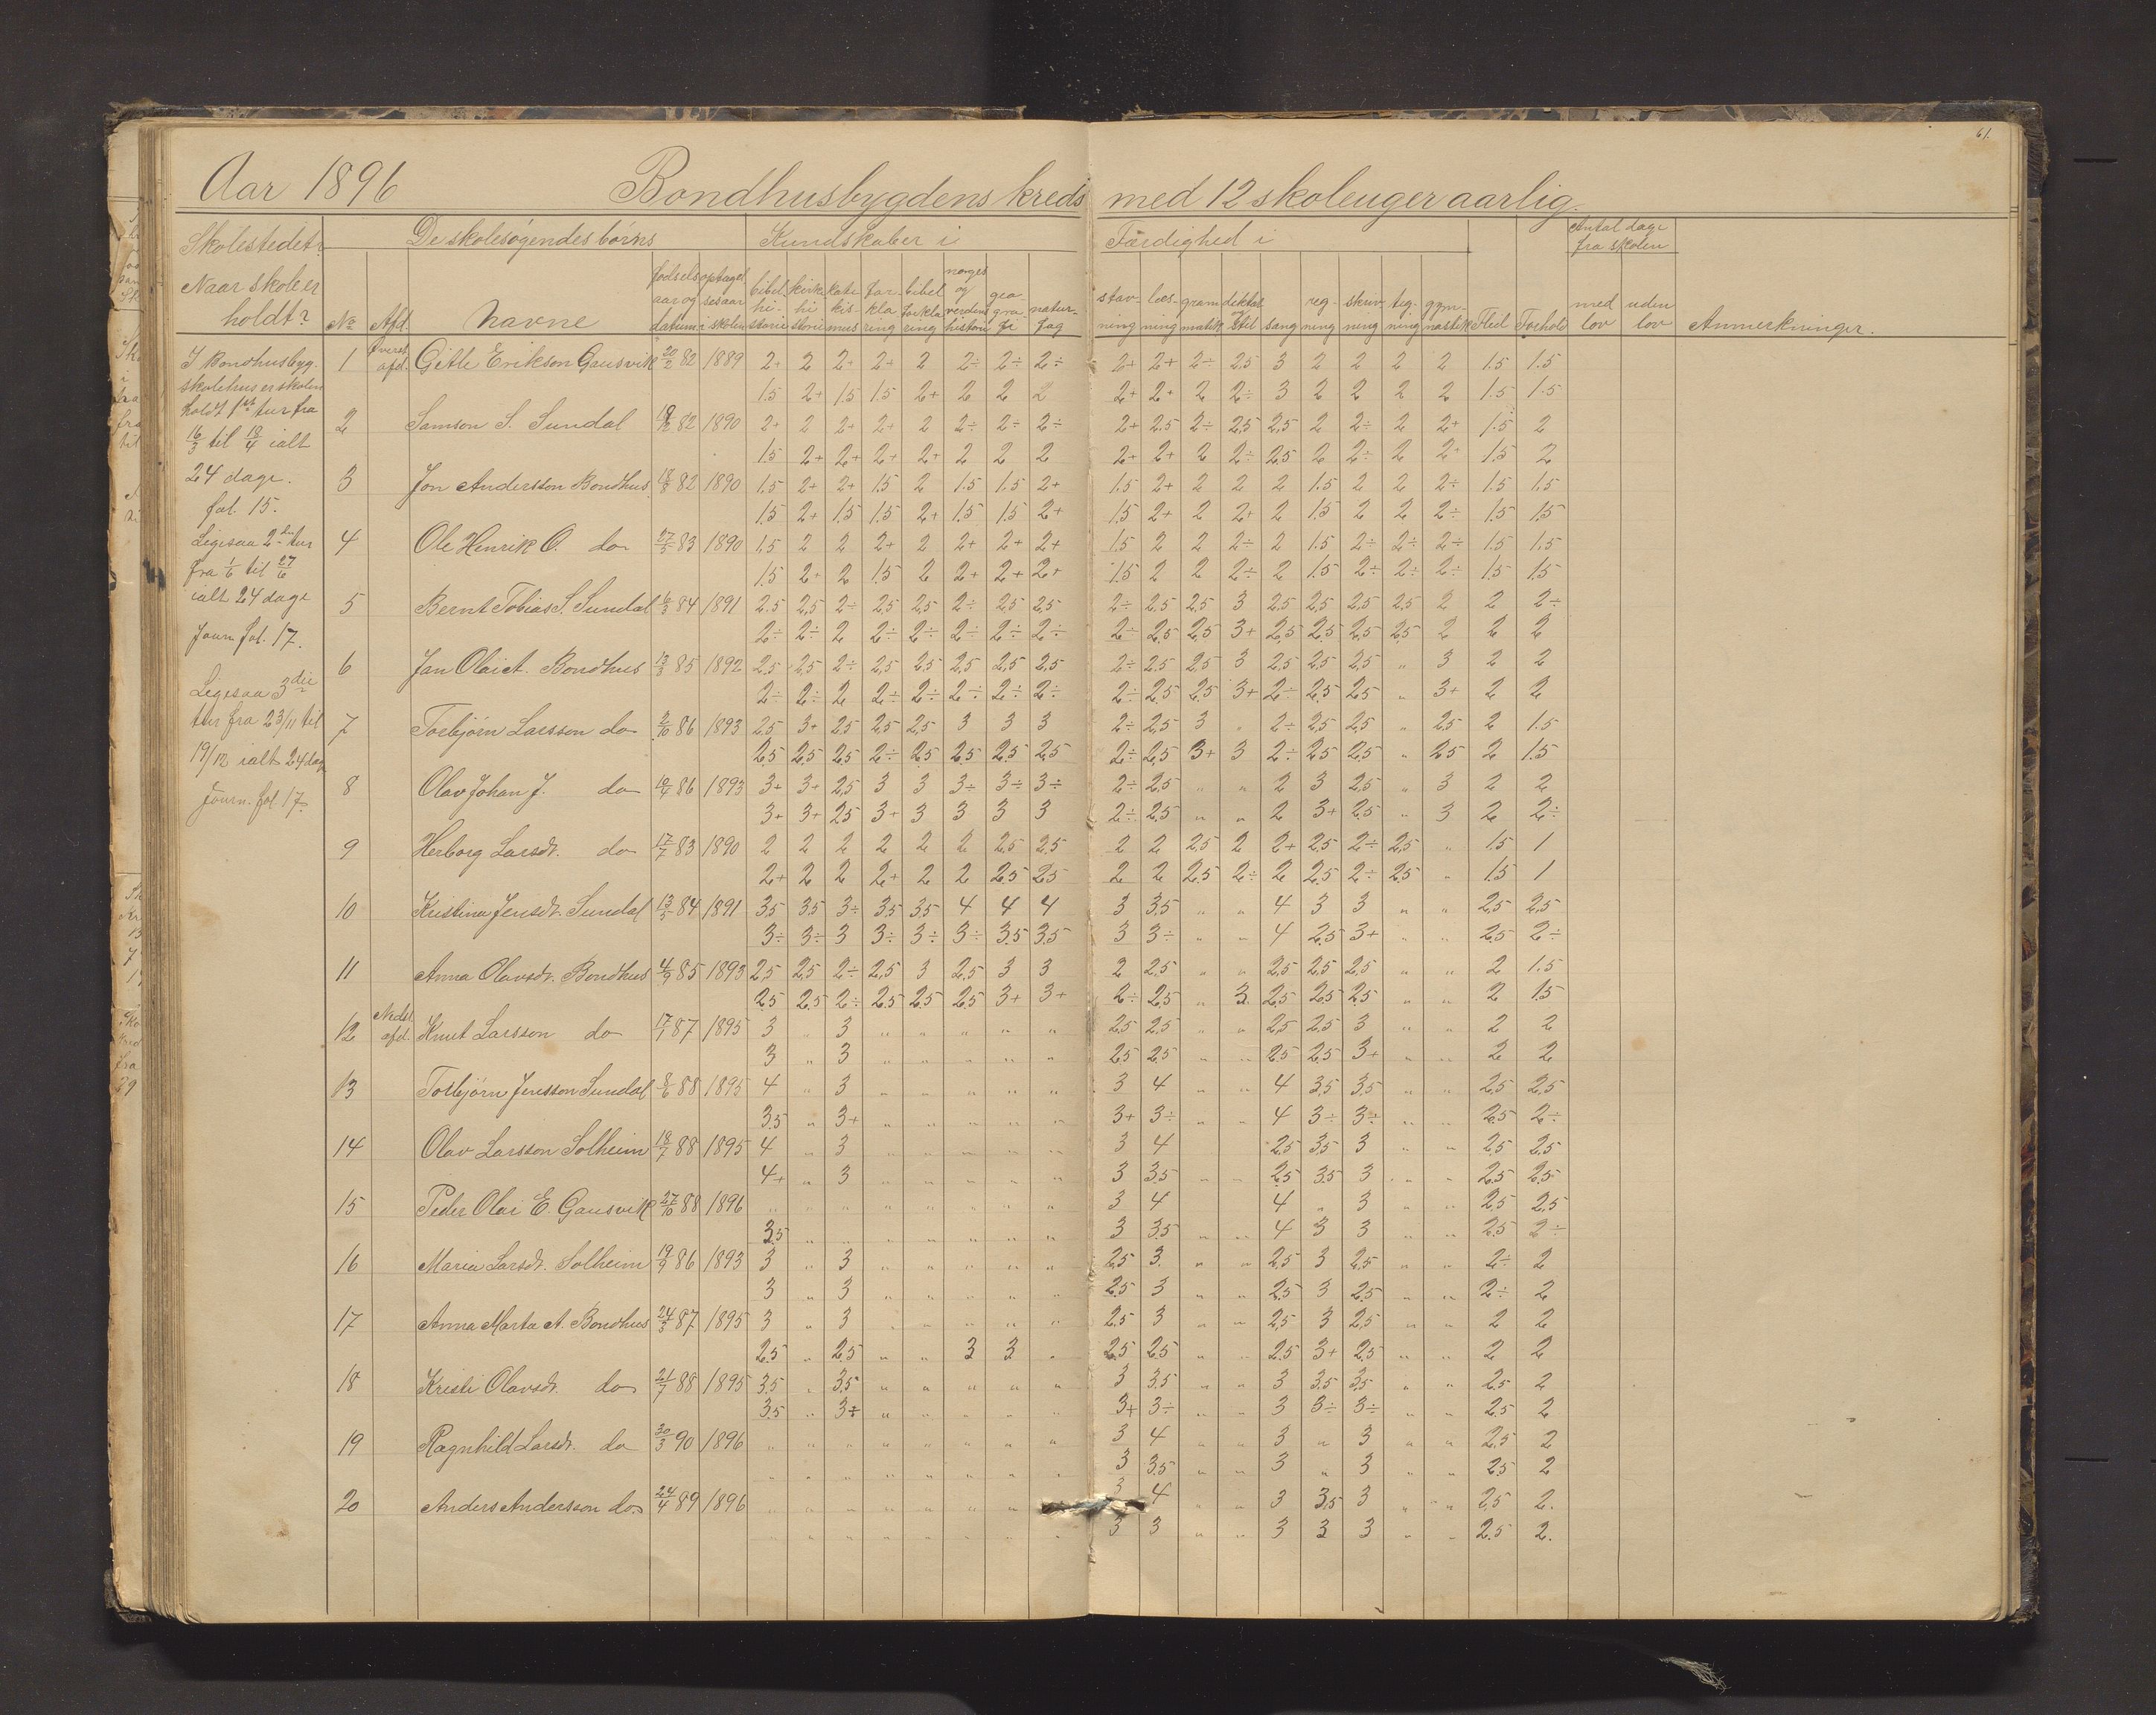 61.
Aar 1896 Bondhusbygdens kreds med 12 skoleuger aarlig.
Skolestedet?
Naar skole er
holdt?
De skolesøgendes børns
Kundskaber i
Færdighed i
Antal dage
fra skolen
No Afd. Navne fødselsaar og datum optagelsesaar i skolen bibelhistorie kirkehistorie katekismus forklaring bibelforklaring norges og verdens historie geografi naturfag stavning læsning gramatik diktat og stil sang regning skrivning tegning gymnastik Flid Forhold med lov uden lov Anmerkninger.
I Bondhusbyg.
skolehus er skolen
holdt 1st tur fra
16/3 til 18/4 ialt
24 dage.
fol. 15.
Ligesaa 2den tur
fra 1/6 til 27/6
ialt 24 dage
Journ fol. 17.
Ligesaa 3die
tur fra 23/11 til
19/12 ialt 24 dage
Journ. fol 17.
1 Øverst. afd. Gitle Erikson Gausvik 20/2 82 1889 2+ 2 2+ 2+ 2 2÷ 2÷ 2÷ 2+ 2+ 2÷ 2.5 3 2 2 2 2 1.5 1.5
1.5 2+ 1.5 1.5 2+ 2 2 2 2+ 2+ 2 2÷ 3 2 2 2 2 1.5 1.5
2 Samson S. Sundal 82 1890 2+ 2 2+ 2+ 2 2÷ 2÷ 2÷ 2+ 2.5 2÷ 2.5 2.5 2 2÷ 2 2+ 1.5 2
1.5 2+ 2+ 2+ 2+ 2 2 2 2+ 2+ 2 2÷ 2.5 2 2÷ 2 2+ 1.5 2
3 Jon Andersson Bondhus 18/8 82 1890 1.5 2+ 2+ 1.5 2 1.5 1.5 2+ 1.5 2+ 2 2 2 1.5 2 2 2÷ 1.5 1.5
1.5 2+ 1.5 1.5 2+ 1.5 1.5 2+ 1.5 2+ 2 2+ 2 1.5 2 2 2÷ 1.5 1.5
4 Ole Henrik O. do 27/5 83 1890 1.5 2 2 2+ 2 2+ 2+ 2+ 1.5 2 2 2÷ 2 1.5 2÷ 2÷ 2÷ 1.5 1.5
1.5 2+ 2 1.5 2 2+ 2+ 2+ 1.5 2 2 2÷ 2 1.5 2÷ 2÷ 2÷ 1.5 1.5
5 Bernt Tobias S. Sundal 6/3 84 1891 2.5 2.5 2÷ 2.5 2.5 2÷ 2.5 2.5 2÷ 2.5 2.5 3 2.5 2.5 2.5 2.5 2 2 2÷
2÷ 2÷ 2 2÷ 2÷ 2÷ 2÷ 2÷ 2÷ 2.5 2.5 3+ 2.5 2.5 2.5 2.5 2 2 2
6 Jan Olai A. Bondhus 13/3 85 1892 2.5 2.5 2÷ 2.5 2.5 2.5 2.5 2.5 2÷ 2.5 2.5 3 2.5 2.5 2.5 „ 3 2 2
2÷ 2÷ 2 2÷ 2÷ 2÷ 2÷ 2÷ 2÷ 2.5 2.5 3+ 2÷ 2.5 2.5 „ 3+ 2 2
7 Torbjørn Larsson do 2/10 86 1893 2.5 3+ 2.5 2.5 2.5 3 3 3 2÷ 2.5 3 „ 2÷ 2.5 2.5 „ 2.5 2 1.5
2.5 2.5 2.5 2÷ 2.5 2.5 2.5 2.5 2÷ 2.5 3+ 3 2÷ 2.5 2.5 „ 2.5 2 1.5
8 Olav Johan J. do 10/4 86 1893 3+ 3+ 2.5 3 3 3÷ 3÷ 3÷ 2÷ 2.5 „ „ 2 3 2.5 „ 3 2 2
3+ 3+ 2.5 3+ 3 3 3 3 2÷ 2.5 „ „ 2 3+ 2.5 „ 3 2 2÷
9 Herborg Larsdt. do 17/7 83 1890 2 2 2 2 2 2 2.5 2.5 2 2 2.5 2 2+ 2.5 2÷ 2.5 „ 1.5 1
2+ 2 2 2+ 2 2 2.5 2.5 2 2 2.5 2÷ 2 2.5 2÷ 2.5 „ 1.5 1
10 Kristina Jensdt. Sundal 13/5 84 1891 3.5 3.5 3÷ 3.5 3.5 4 4 4 3 3.5 „ „ 4 3 3 „ „ 2.5 2.5
3÷ 3÷ 3 3÷ 3÷ 3÷ 3.5 3.5 3 3÷ „ „ 4 2.5 3+ „ „ 2.5 2÷
11 Anna Olavsdt. Bondhus 4/9 85 1893 2.5 2.5 2÷ 2.5 3 2.5 3 3 2 2.5 „ „ 2.5 2.5 2.5 „ „ 2 1.5
2.5 2.5 2÷ 2.5 2.5 2.5 3+ 3+ 2÷ 2.5 „ 3. 2.5 2.5 2.5 „ „ 2 1.5
12 Nedst. afd. Knut Larsson do 17/7 87 1895 3 „ 3 „ „ „ „ „ 2.5 2.5 „ „ 2.5 2.5 3 „ „ 2 2
3 „ 3 „ „ „ „ „ 2.5 2.5 „ „ 2.5 2.5 3+ „ „ 2 2
13 Torbjørn Jensson Sundal 8/6 88 1895 4 „ 3 „ „ „ „ „ 3 4 „ „ 4 3.5 3.5 „ „ 2.5 2.5
3.5 „ 3+ „ „ „ „ „ 3+ 3÷ „ „ 4 3÷ 3÷ „ „ 2.5 2÷
14 Olav Larsson Solheim 18/7 88 1895 4 „ 3 „ „ „ „ „ 3 4 2.5 3.5 3 „ „ 2.5 2.5
4+ „ 3 „ „ „ „ „ 3 3.5 „ „ 2.5 3.5 3 „ „ 2.5 2.5
15 Peder Olai E. Gausvik 27/10 88 1896 „ „ „ „ „ „ „ „ 3 4 4 „ 3 „ „ 2.5 2.5
3.5 „ „ „ „ „ „ „ 3 3.5 „ „ 4 3 3 „ „ 2.5 2÷
16 Maria Larsdt. Solheim 19/9 86 1893 3 „ 3 „ „ „ „ „ 2.5 3. „ „ 2.5 3 2.5 „ „ 2÷ 2
3 „ 3 „ „ „ „ „ 2.5 3 „ „ 2.5 3 2.5 „ „ 2÷ 2
17 Anna Marta A. Bondhus 24/3 87 1895 3 „ 3 „ „ „ „ „ 2.5 3 „ „ 2.5 3 2.5 „ „ 2 2
2.5 „ 2.5 „ „ 3 3 „ 2.5 2.5 „ „ 2.5 3+ 2.5 „ „ 2 2
18 Kristi Olavsdt. do 21/7 88 1895 3.5 „ 3.5 „ „ „ „ „ 3 3.5 „ „ 3 3.5 3.5 „ „ 2.5 2
3.5 „ 3÷ „ „ „ „ „ 3+ 3÷ „ „ 3 3÷ 3÷ „ „ 2.5 2
19 Ragnhild Larsdt. do 30/3 90 1896 „ „ „ „ „ „ „ „ 3 4 „ „ 3 „ 3 „ „ 2.5 2
„ „ „ „ „ „ „ „ 3 3.5 „ „ 3 „ 3 „ „ 2.5 2
20 Anders Andersson do 24/4 89 1896 „ „ „ „ „ „ „ 3 4 „ „ 3 3.5 3 „ „ 2.5 2.
„ „ „ „ „ „ „ „ 3 3 „ „ 3 3 3 „ „ 2.5 2.